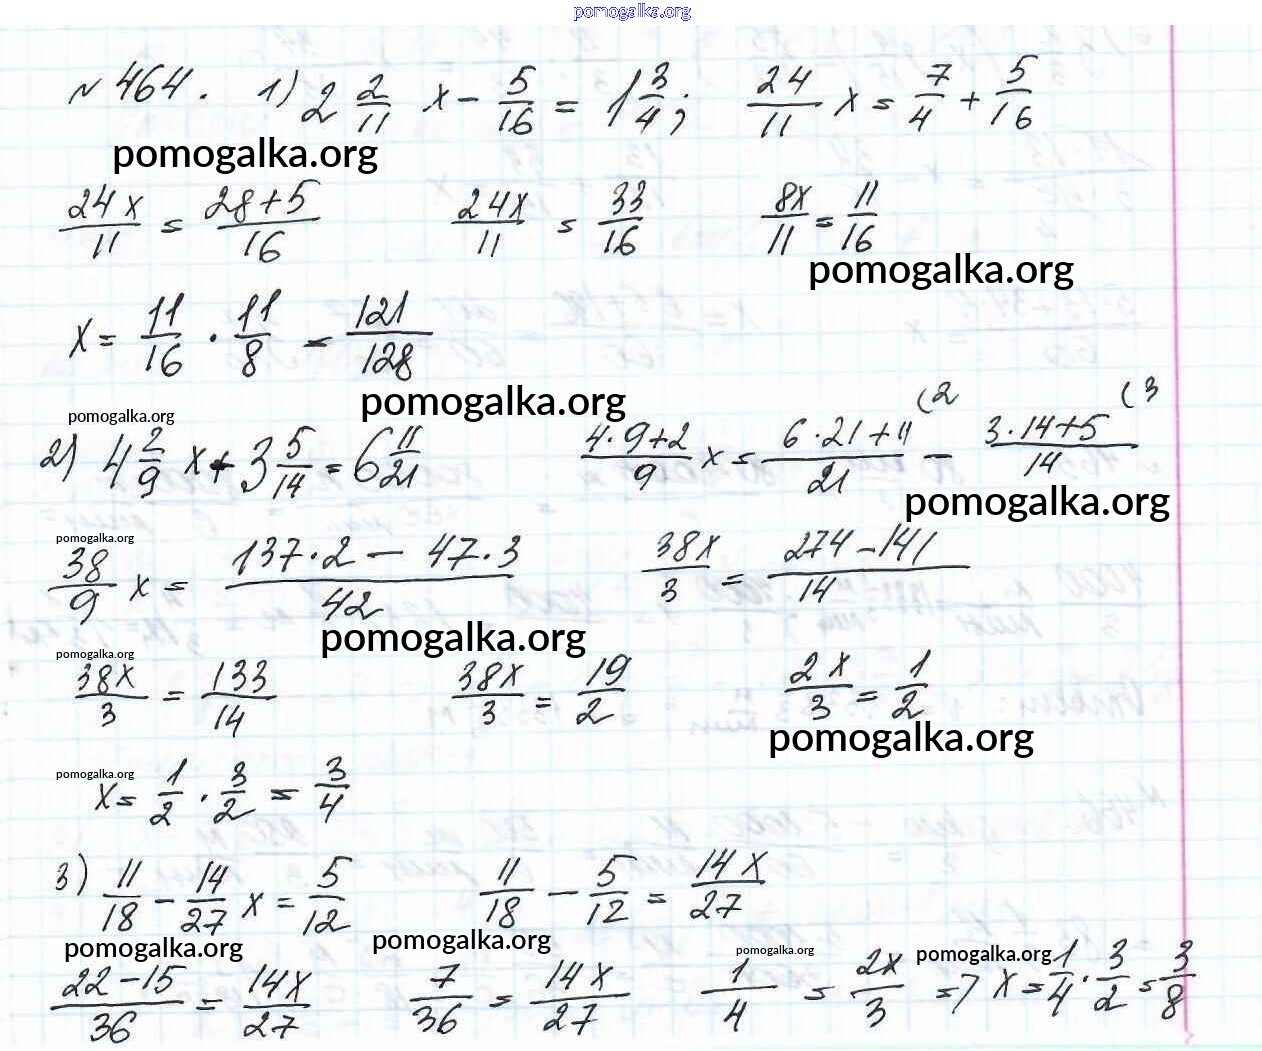 pomogalka.org
№ 464. 1) 2 2/11 x - 5/16 = 1 3/4; 24/11 x = 7/4 + 5/16
pomogalka.org
24x/11 = (28+5)/16 24x/11 = 33/16 8x/11 = 11/16
pomogalka.org
x = 11/16 · 11/8 = 121/128
pomogalka.org
pomogalka.org
2) 4 2/9 x + 3 5/14 = 6 11/21 (4·9+2)/9 x = (6·21+11)/21 (2 - (3·14+5)/14 (3
pomogalka.org
pomogalka.org
38/9 x = (137·2 - 47·3)/42 38x/3 = (274-141)/14
pomogalka.org
pomogalka.org
38x/3 = 133/14 38x/3 = 19/2 2x/3 = 1/2
pomogalka.org
pomogalka.org
x = 1/2 · 3/2 = 3/4
3) 11/18 - 14/27 x = 5/12 11/18 - 5/12 = 14x/27
pomogalka.org pomogalka.org pomogalka.org pomogalka.org
(22-15)/36 = 14x/27 7/36 = 14x/27 1/4 = 2x/3 => x = 1/4 · 3/2 = 3/8